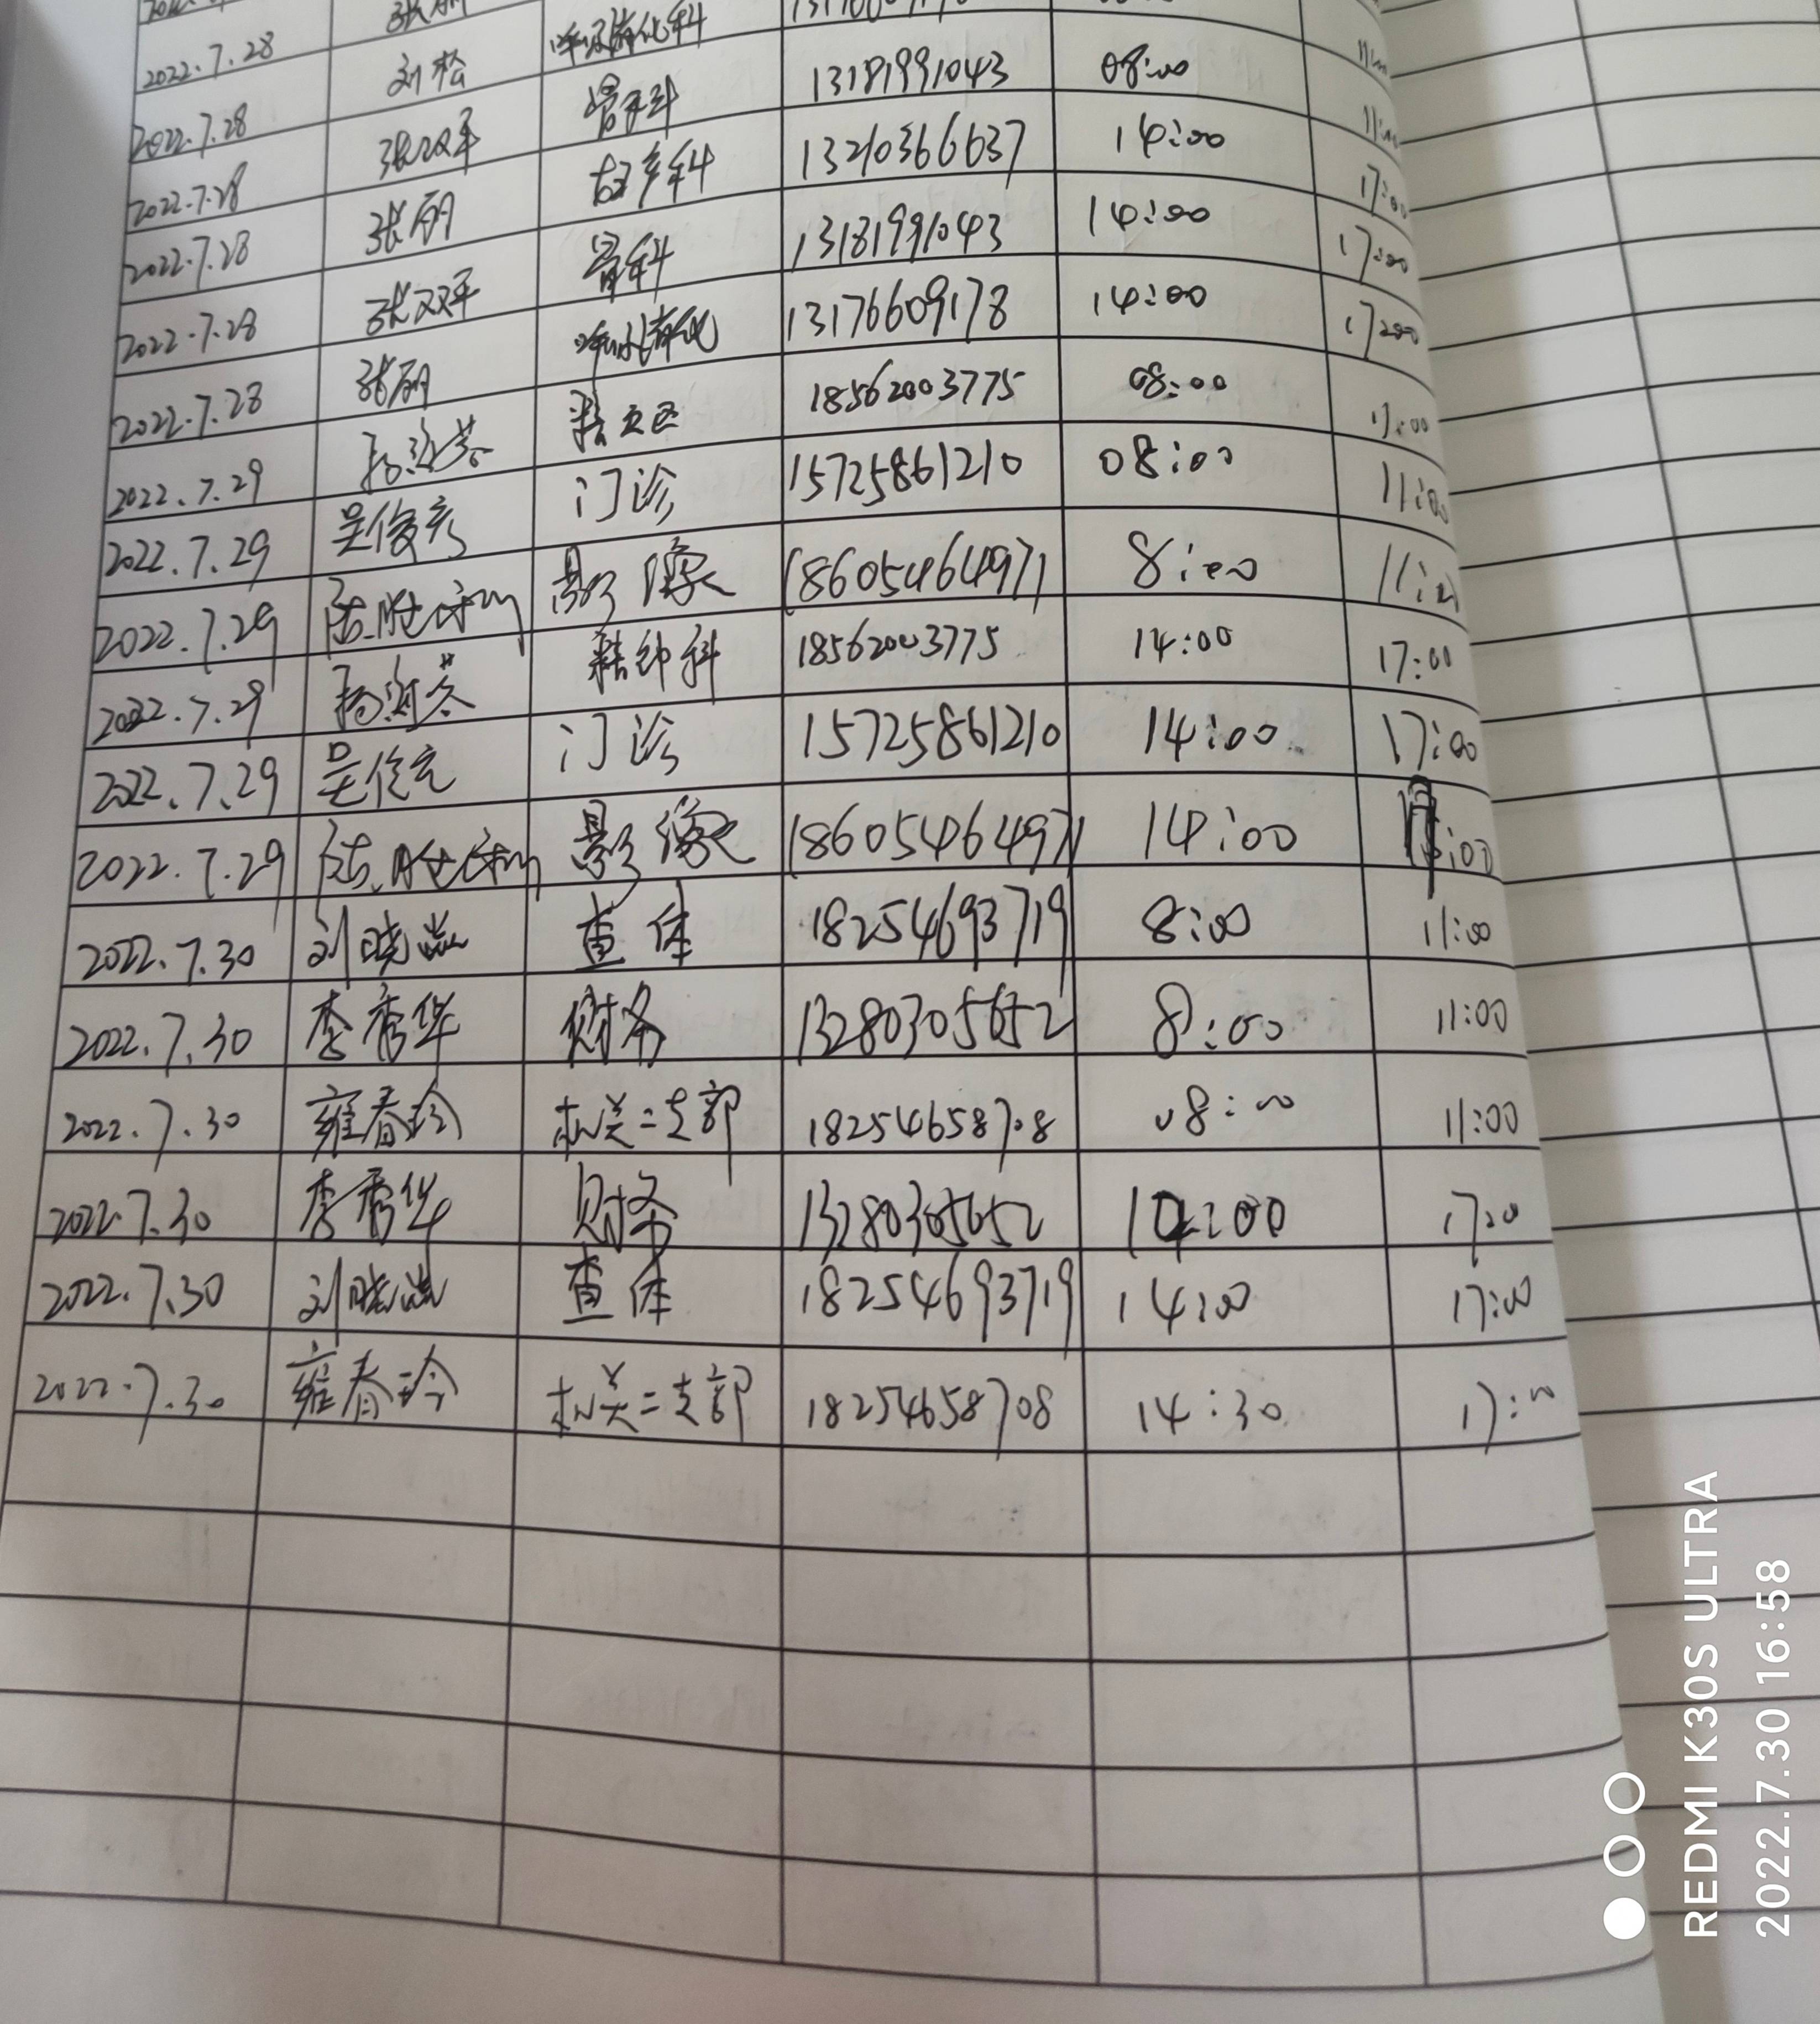 2022.7.28 呼吸消化科
2022.7.28 刘松 骨科 13181991043 08:00 11:00
2022.7.28 张双平 妇产科 13210366637 14:00 17:00
2022.7.28 张丽 骨科 13181991043 14:00 17:00
2022.7.28 张双平 呼吸消化 13176609178 14:00 17:00
2022.7.28 张丽
2022.7.29 18562003775 08:00 11:00
2022.7.29 吴俊亮 门诊 15725861210 08:00 11:00
2022.7.29 影像 18605464971 8:00 11:00
2022.7.29 精神科 18562003775 14:00 17:00
2022.7.29 吴俊亮 门诊 15725861210 14:00 17:00
2022.7.29 影像 18605464971 14:00
2022.7.30 刘晓 查体 18254693719 8:00 11:00
2022.7.30 李秀华 财务 13280305652 8:00 11:00
2022.7.30 雍春玲 机关二支部 18254658708 08:00 11:00
2022.7.30 李秀华 财务 13280305652 14:00 17:00
2022.7.30 刘晓 查体 18254693719 14:00 17:00
2022.7.30 雍春玲 机关二支部 18254658708 14:30 17:00
REDMI K30S ULTRA
2022.7.30 16:58